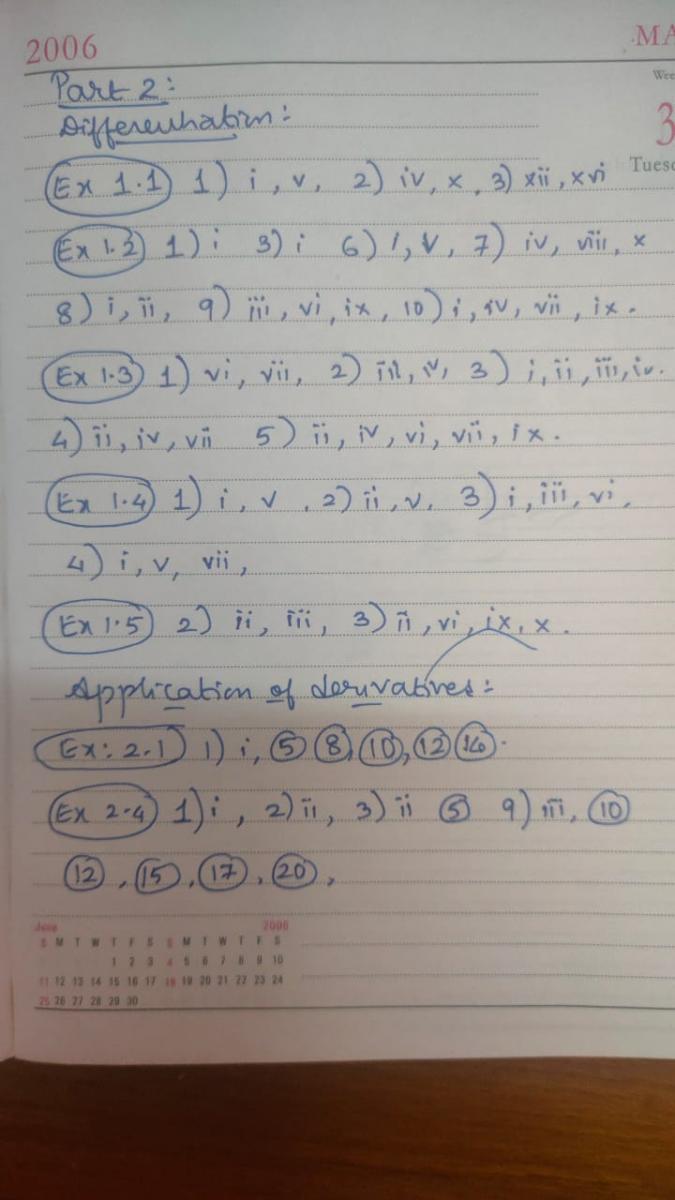 2006 MA
Wee
Part 2:
Differentiation:
3
Tuesd
Ex 1.1 1) i, v, 2) iv, x, 3) xii, xvi
Ex 1.2 1) i 3) i 6) i, v, 7) iv, viii, x
8) i, ii, 9) iii, vi, ix, 10) i, iv, vii, ix.
Ex 1.3 1) vi, vii, 2) iii, iv, 3) i, ii, iii, iv.
4) ii, iv, vii 5) ii, iv, vi, vii, ix.
Ex 1.4 1) i, v, 2) ii, v, 3) i, iii, vi,
4) i, v, vii,
Ex 1.5 2) ii, iii, 3) ii, vi, ix, x.
Application of derivatives:
Ex: 2.1 1) i, 5 8, 10, 12 14.
Ex 2.4 1) i, 2) ii, 3) ii 5 9) iii, 10
12, 15, 17, 20,
June 2006
S M T W T F S S M T W T F S
1 2 3 4 5 6 7 8 9 10
11 12 13 14 15 16 17 18 19 20 21 22 23 24
25 26 27 28 29 30